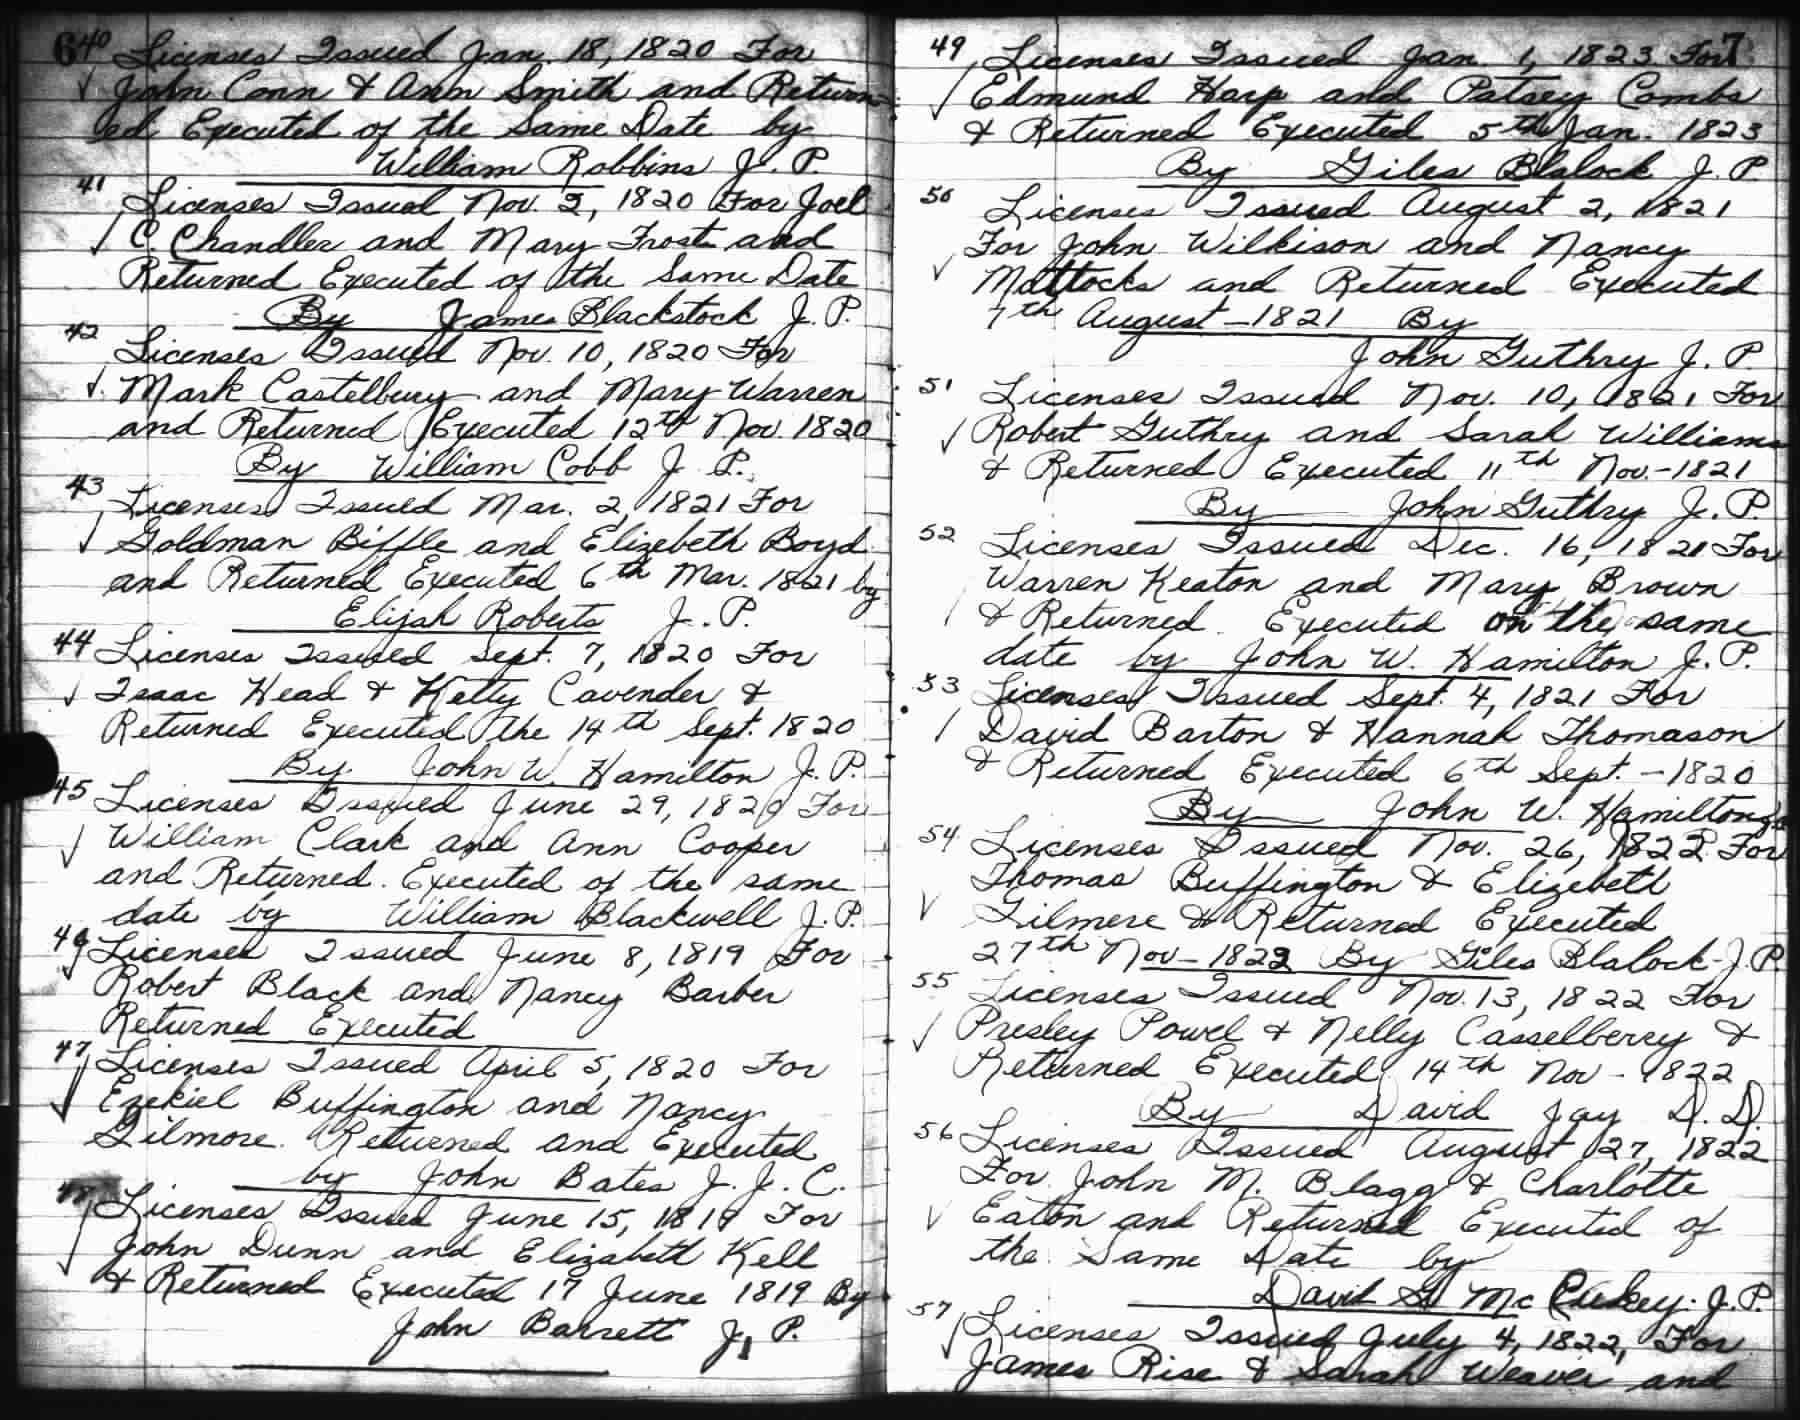 6
40 Licenses Issued Jan. 18, 1820 For
John Conn & Ann Smith and Return
ed Executed of the Same Date by
William Robbins J. P.
41 Licenses Issued Nov. 2, 1820 For Joel
C. Chandler and Mary Frost and
Returned Executed of the Same Date
By James Blackstock J. P.
42 Licenses Issued Nov. 10, 1820 For
Mark Castelbury and Mary Warren
and Returned Executed 12th Nov. 1820
By William Cobb J. P.
43 Licenses Issued Mar. 2, 1821 For
Goldman Biffle and Elizebeth Boyd
and Returned Executed 6th Mar. 1821 by
Elijah Roberts J. P.
44 Licenses Issued Sept. 7, 1820 For
Isaac Head & Ketty Cavender &
Returned Executed the 14th Sept. 1820
By John W. Hamilton J. P.
45 Licenses Issued June 29, 1820 For
William Clark and Ann Cooper
and Returned. Executed of the same
date by William Blackwell J. P.
46 Licenses Issued June 8, 1819 For
Robert Black and Nancy Barber
Returned Executed
47 Licenses Issued April 5, 1820 For
Ezekiel Buffington and Nancy
Gilmore. Returned and Executed
by John Bates J. J. C.
48 Licenses Issued June 15, 1819 For
John Dunn and Elizabeth Kell
& Returned Executed 17 June 1819 By
John Barrett J. P.
7
49 Licenses Issued Jan. 1, 1823 For
Edmund Harp and Patsey Combs
& Returned Executed 5th Jan. 1823
By Giles Blalock J. P.
50 Licenses Issued August 2, 1821
For John Wilkison and Nancy
Mattocks and Returned Executed
7th August - 1821 By
John Guthry J. P.
51 Licenses Issued Nov. 10, 1821 For
Robert Guthry and Sarah Williams
& Returned Executed 11th Nov. - 1821
By John Guthry J. P.
52 Licenses Issued Dec. 16, 1821 For
Warren Keaton and Mary Brown
& Returned. Executed on the same
date by John W. Hamilton J. P.
53 Licenses Issued Sept. 4, 1821 For
David Barton & Hannah Thomason
& Returned Executed 6th Sept. - 1820
By John W. Hamilton
54 Licenses Issued Nov. 26, 1822 For
Thomas Buffington & Elizebeth
Gilmere & Returned Executed
27th Nov - 1822 By Giles Blalock - J. P.
55 Licenses Issued Nov. 13, 1822 For
Presley Powel & Nelly Casselberry &
Returned Executed 14th Nov - 1822
By David Jay D. D.
56 Licenses Issued August 27, 1822
For John M. Blagg & Charlotte
Eaton and Returned Executed of
the Same Date by
David G. Mc J. P.
57 Licenses Issued July 4, 1822, For
James Rise & Sarah Weaver and